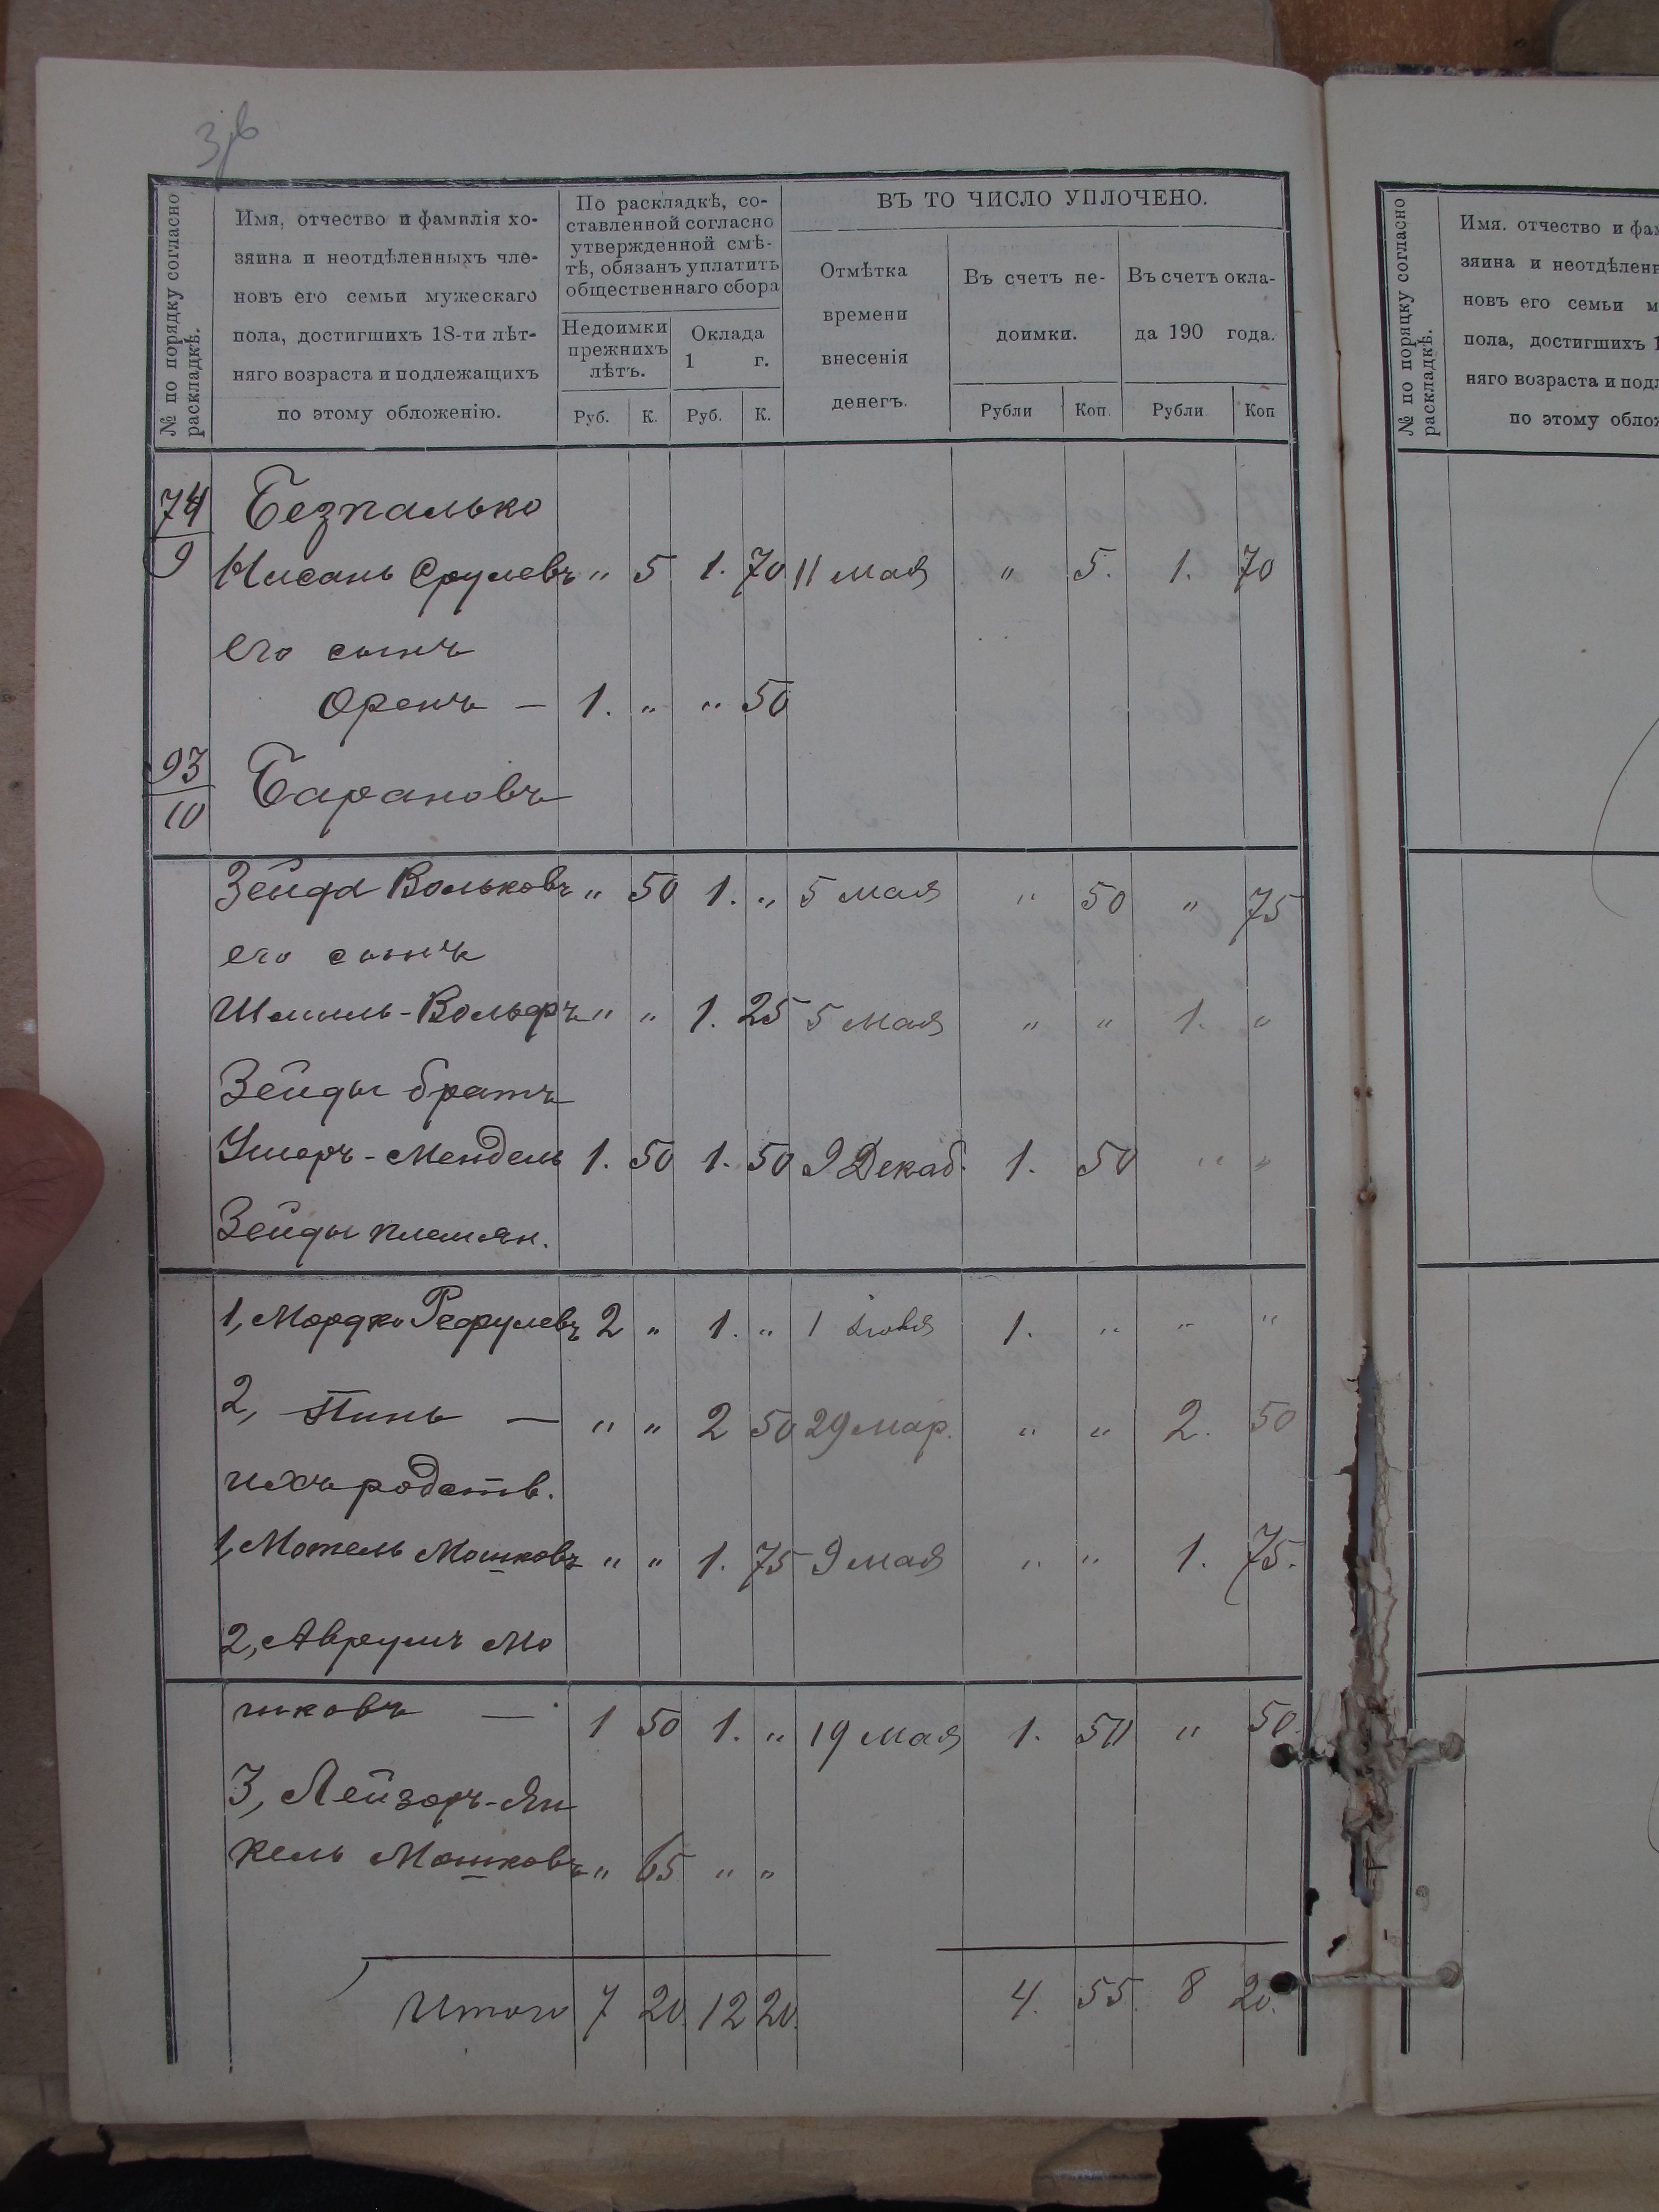 № по порядку согласно
раскладкѣ.
Имя, отчество и фамилія хо-
зяина и неотдѣленныхъ чле-
новъ его семьи мужескаго
пола, достигшихъ 18-ти лѣт-
няго возраста и подлежащихъ
по этому обложенію.
По раскладкѣ, со-
ставленной согласно
утвержденной смѣ-
тѣ, обязанъ уплатить
общественнаго сбора
Недоимки
прежнихъ
лѣтъ.
Оклада
1 г.
Руб. К. Руб. К.
ВЪ ТО ЧИСЛО УПЛОЧЕНО.
Отмѣтка
времени
внесенія
денегъ.
Въ счетъ не-
доимки.
Въ счетъ окла-
да 190 года.
Рубли Коп. Рубли Коп
74 Безпалько
9 Нисань Срулевъ " 5 1. 70 11 мая " 5. 1. 70
его сынъ
Оренъ — 1. " " 50
93
10 Барановъ
Зейда Вольковъ " 50 1. " 5 мая " 50 " 75
его сынъ
Шмиль-Вольфъ " " 1. 25 5 мая " " 1. "
Зейды братъ
Ушеръ-Мендель 1. 50 1. 50 9 Декаб. 1. 50 " "
Зейды племян.
1, Мордко Рефулевъ 2 " 1. " 1 1. " " "
2, Пинь — " " 2 50 29 мар. " " 2. 50
ихъ родств.
1, Мотель Мошковъ " " 1. 75 9 мая " " 1. 75.
2, Аврумъ Мо
шковъ — 1 50 1. " 19 мая 1. 50 " 50.
3, Лейзоръ-Ян
кель Мошковъ " 65 " "
Итого 7 20 12 20. 4. 55. 8 20.
№ по порядку согласно
раскладкѣ.
Имя. отчество и фам
зяина и неотдѣленн
новъ его семьи м
пола, достигшихъ 1
няго возраста и подл
по этому облож